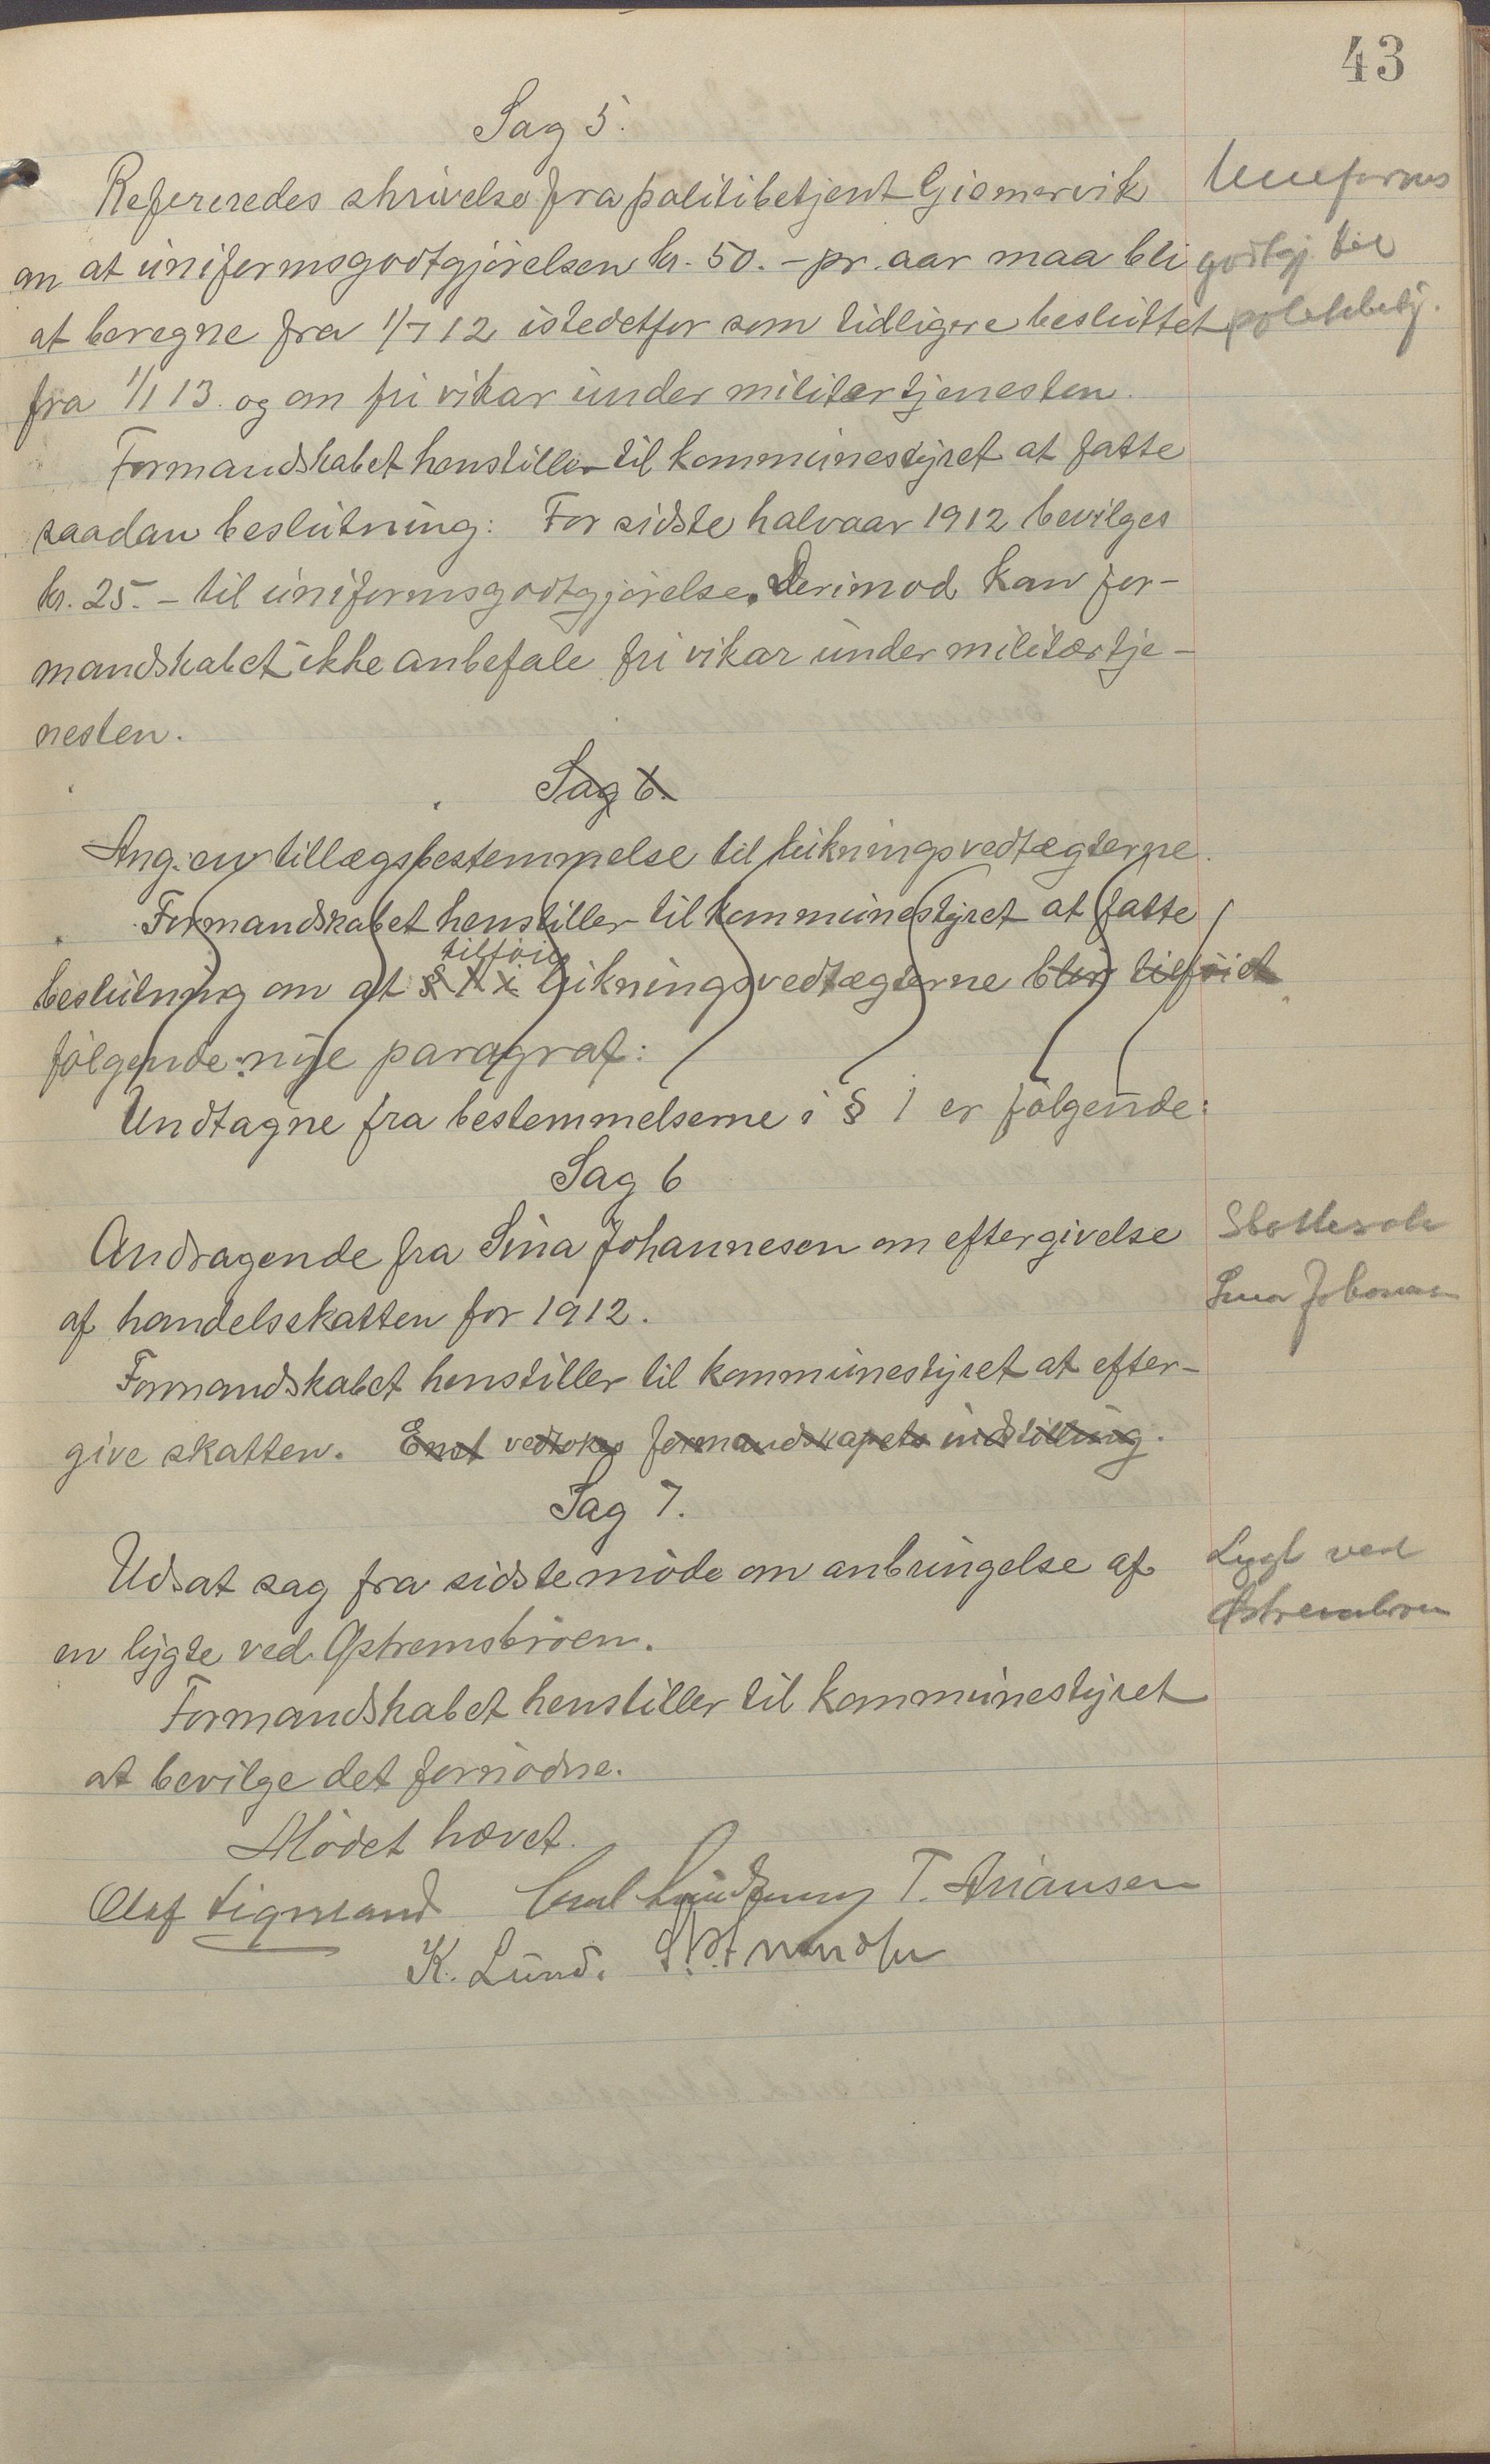 43
Sag 5.
Refereredes skrivelse fra politibetjent Gismervik
om at uniformsgodtgjörelsen kr. 50.- pr. aar maa bli
at beregne fra 1/7 12 istedetfor som tidligere besluttet
fra 1/1 13. og om fri vikar under militærtjenesten.
Uniforms
godtgj. til
politibetj.
Formandskabet henstiller til kommunestyret at fatte
saadan beslutning: For sidste halvaar 1912 bevilges
kr. 25.- til uniformsgodtgjörelse. Derimod kan for-
mandskabet ikke anbefale fri vikar under militærtje-
nesten.
Sag 6.
Ang. en tillægsbestemmelse til likningsvedtægterne.
Formandskabet henstiller til kommunestyret at fatte
tilföie
beslutning om at § 1 i likningsvedtægterne blir tilföiet
fölgende nye paragraf:
Undtagne fra bestemmelserne i § 1 er fölgende:
Sag 6
Andragende fra Sina Johannesen om eftergivelse
af handelsskatten for 1912.
Sina Johannesen
Formandskabet henstiller til kommunestyret at efter-
give skatten. Enst vedtokes formandskapets indstilling.
Sag 7.
Udsat sag fra sidste möde om anbringelse af
en lygte ved Östremsbroen.
Lygt ved
Östremsbroen
Formandskabet henstiller til kommunestyret
at bevilge det fornödne.
Mödet hævet.
Olaf Sigmand T. Ariansen
K. Lund.